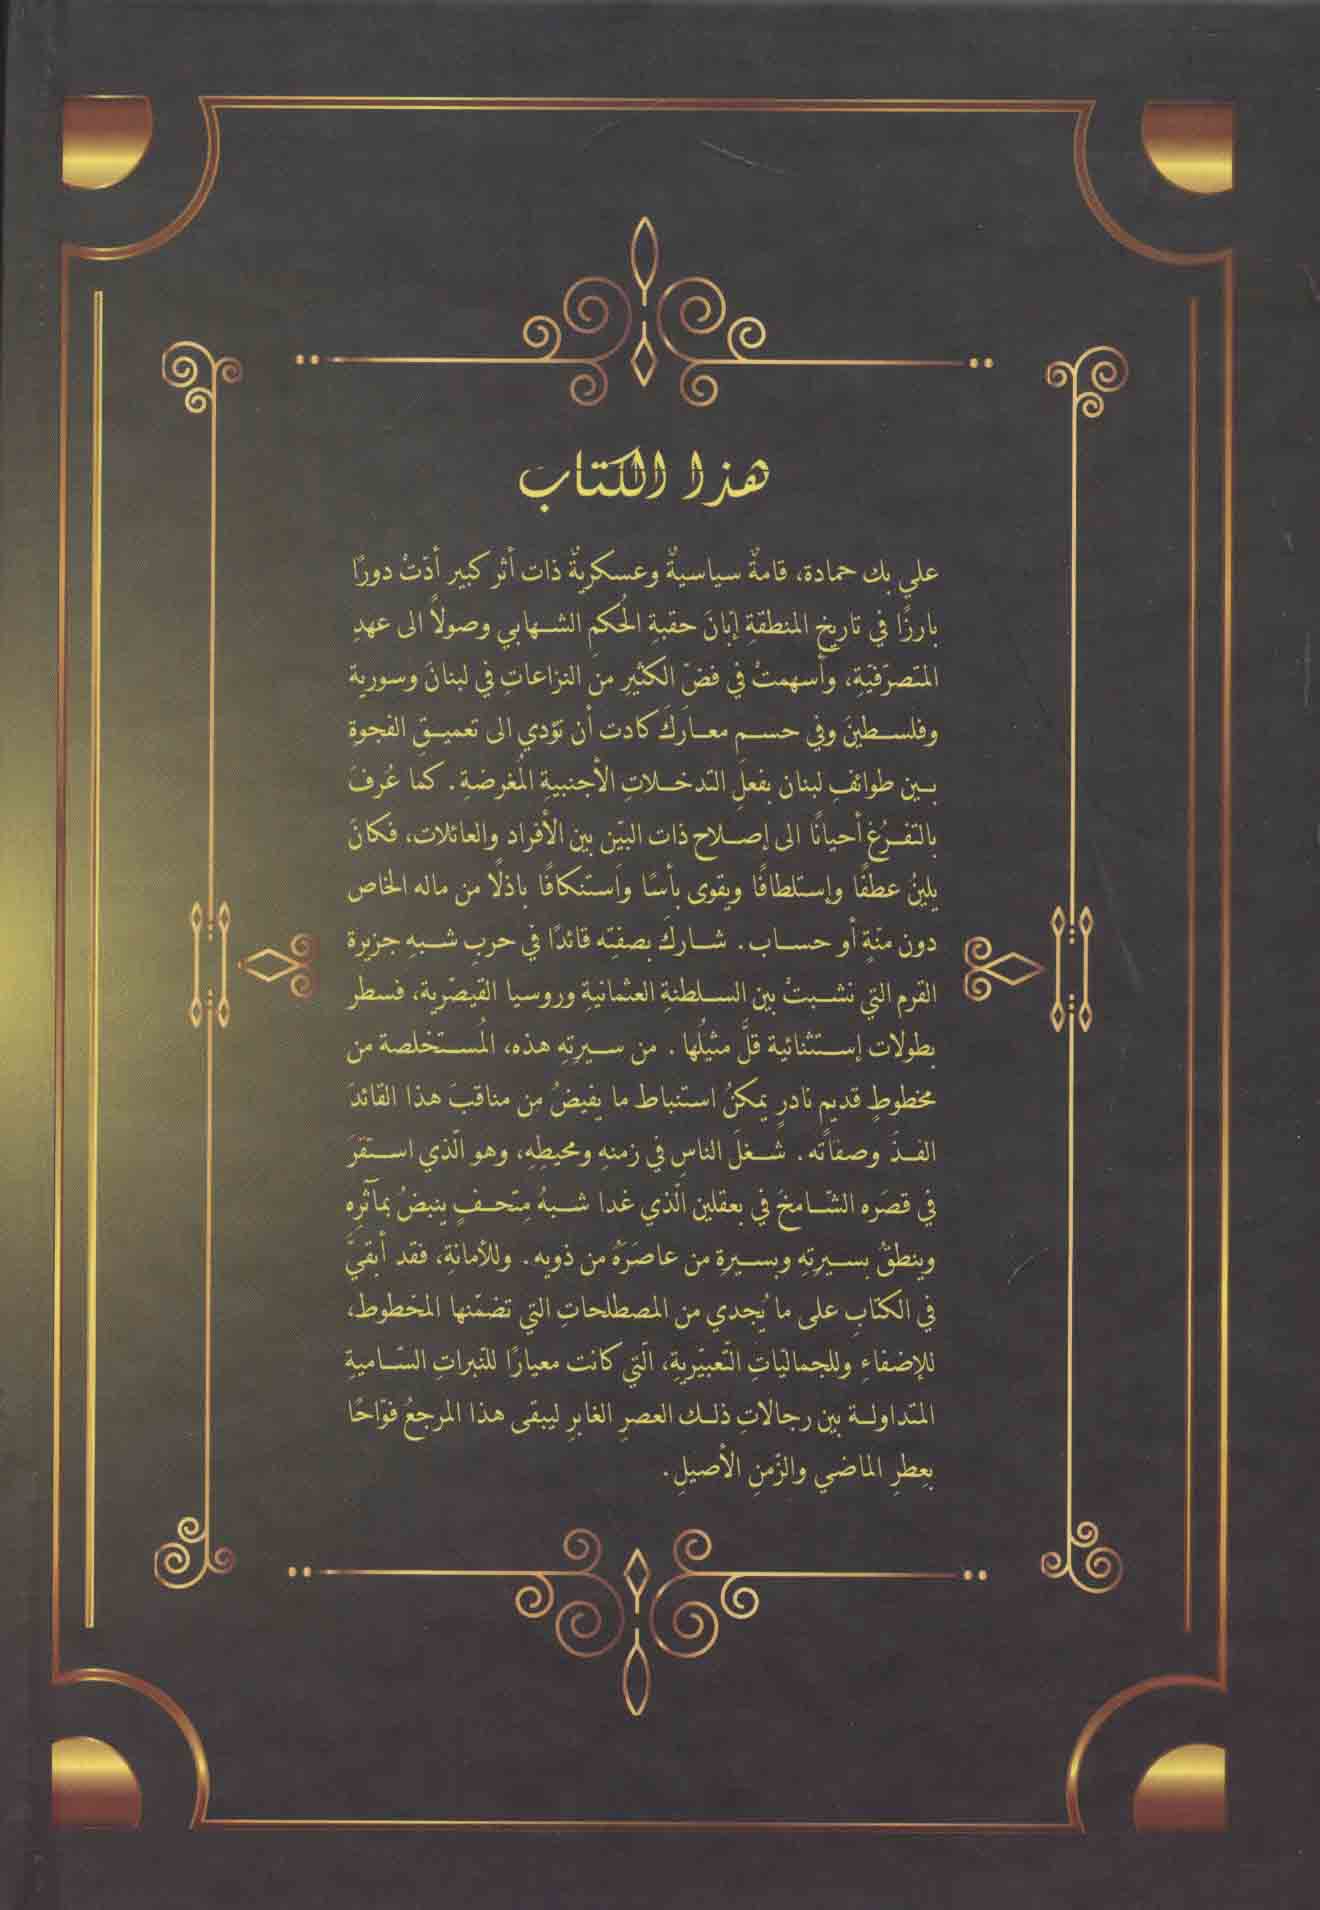 هذا الكتاب
علي بك حمادة، قامةٌ سياسيةٌ وعسكريةٌ ذات أثر كبير أدّتْ دورًا
بارزًا في تاريخ المنطقةِ إبّانَ حقبةِ الحُكمِ الشهابي وصولاً الى عهدِ
المتصرّفيّةِ، وأسهمتْ في فضّ الكثيرِ من النزاعاتِ في لبنانَ وسورية
وفلسطينَ وفي حسمِ معاركَ كادت أن تؤدي الى تعميقِ الفجوةِ
بين طوائفِ لبنان بفعلِ التدخلاتِ الأجنبيةِ المُغرضةِ. كما عُرفَ
بالتفرُغ أحيانًا الى إصلاح ذات البيّن بين الأفراد والعائلات، فكانَ
يلينُ عطفًا وإستلطافًا ويقوى بأسًا واستنكافًا باذلًا من ماله الخاص
دون منّةٍ أو حساب. شاركَ بصفته قائدًا في حربِ شبهِ جزيرة
القرم التي نشبتْ بين السلطنةِ العثمانيةِ وروسيا القيصّرية، فسطر
بطولات إستثنائية قلَّ مثيلُها. من سيرتِه هذه، المُستخلصة من
مخطوطٍ قديمٍ نادرٍ يمكنُ استنباط ما يفيضُ من مناقبَ هذا القائدَ
الفذَ وصفاته. شغلَ الناسِ في زمنهِ ومحيطِهِ، وهو الّذي استقرَ
في قصرَه الشّامخَ في بعقلين الّذي غدا شبهُ متحفٍ ينبضُ بمآثرِهِ
وينطقُ بسيرتِهِ وبسيرةِ من عاصَرَهُ من ذويه. وللأمانةِ، فقد أبقيَ
في الكتابِ على ما يُجدي من المصطلحاتِ التي تضمّنها المخطوط،
للإضفاءِ وللجماليّاتِ التّعبيّريةِ، الّتي كانت معيارًا للنبراتِ السّاميةِ
المتداولة بين رجالاتِ ذلك العصرِ الغابرِ ليبقى هذا المرجعُ فوّاحًا
بِعطرِ الماضي والزّمنِ الأصيلِ.